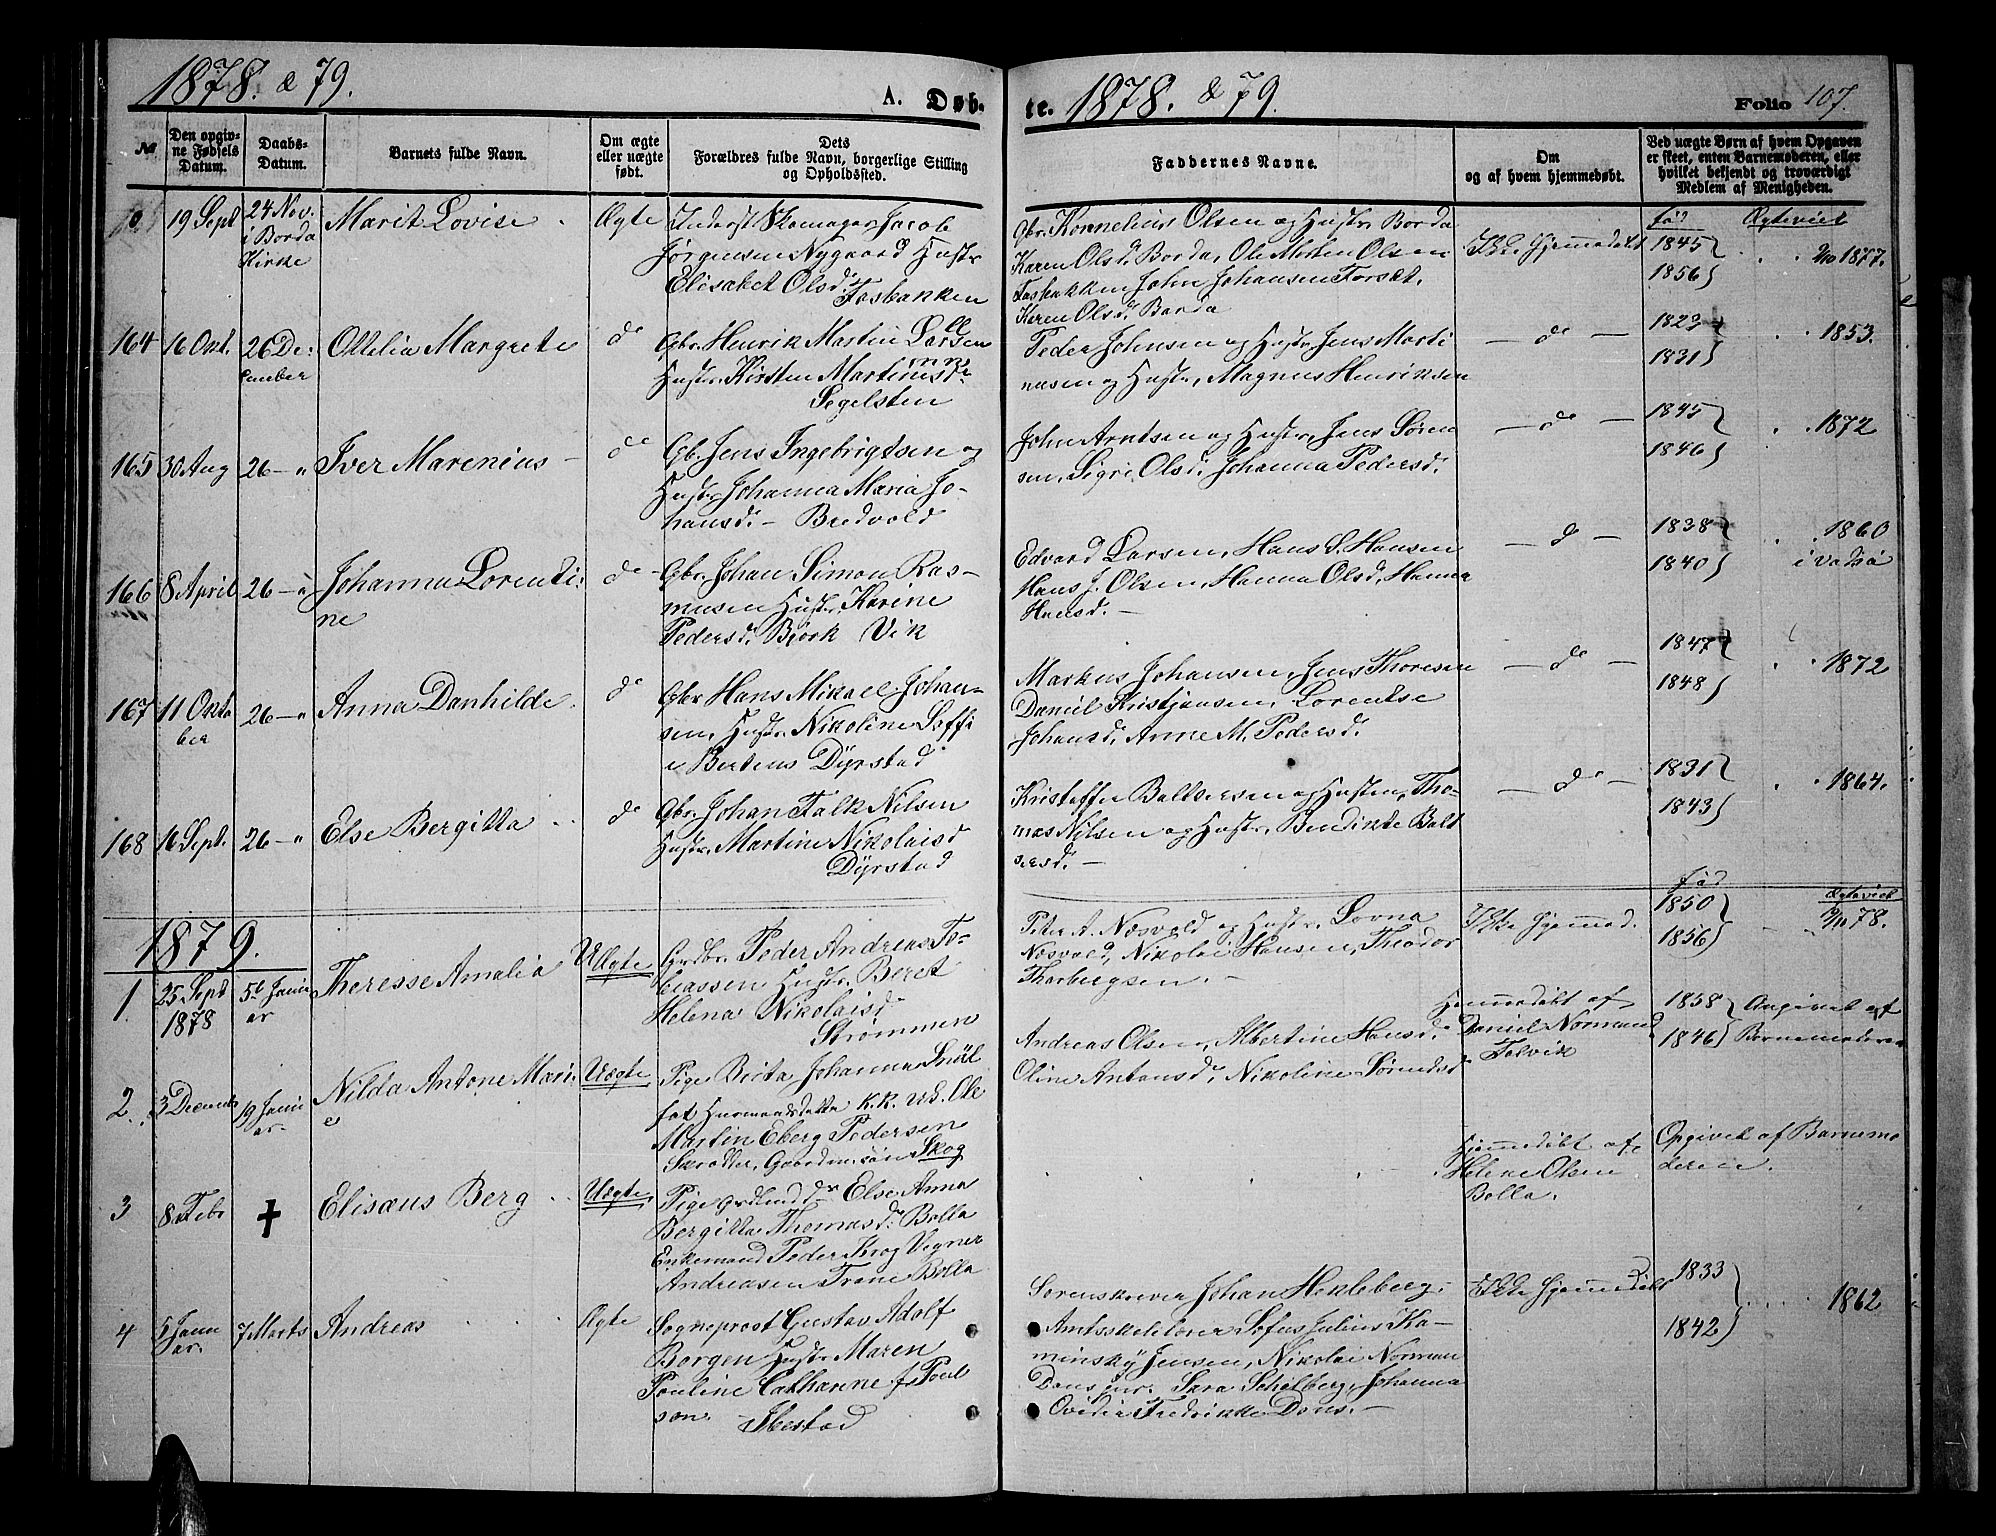 1878. & 79.
A. Døb-
te. 1878. & 79.
Folio 107.
№
Den opgiv-
ne Fødsels
Datum.
Daabs-
Datum.
Barnets fulde Navn.
Om ægte
eller uægte
født.
Dets
Forældres fulde Navn, borgerlige Stilling
og Opholdssted.
Faddernes Navne.
Om
og af hvem hjemmedøbt.
Ved uægte Børn af hvem Opgaven
er skeet, enten Barnemoderen, eller
hvilket bekjendt og troværdigt
Medlem af Menigheden.
19 Sept
24 Nov.
i Borda
Kirke
Marit Lovise
Ægte
Underst Skomager Jacob
Jørgensen Nygaard Hustr
Elisabet Olsd.
Fosbakken
Gbr. Kornelius Olsen og Hustr. Borda
Karen Olsd. Borda, Ole Morten Olsen
Fosbakken John Johansen Forset,
Karen Olsd. Borda
Ikke Hjemmedøbt
fød
Ægteviet
1845
1856
1877.
164
16 Okt.
26 De-
cember
Ottelia Margrete
do
Gbr. Henrik Martin Larsen
Hustr. Kirsten Martinsd.
Segelsten
Peder Johnsen og Hustr, Jens Marti
nusen og Hustr, Magnus Henriksen
— do —
1823
1831
1853.
165
30 Aug
26 — "
Iver Marenius
do
Gb. Jens Ingebrigtsen og
Hustr. Johanna Maria Jo-
hansd. — Bredvold
John Arntsen og Hustr, Jens Søren
sen, Sigri Olsd. Johanna Pedersd.
— do —
1845
1846
1872
166
8 April
26 — "
Johanna Lorenti-
ne
do
Gbr. Johan Simon Ras-
musen Hustr. Karine
Pedersd. Bjørk Vik
Edvard Larsen, Hans S. Hansen
Hans J. Olsen, Hanna Olsd, Hanna
Hansd. —
— do —
1838
1840
1860
i Vadsø
167
11 Okto
ber
26 — "
Anna Danhilde
do
Gbr Hans Mikael Johan-
sen, Hustr. Nikoline Soffi
e Bertens Dyrstad
Markus Johansen, Jens Thoresen
Daniel Kristjansen, Lorentse
Johansd. Anne M. Pedersd.
— do —
1847
1848
1872
168
16 Sept.
26 — "
Else Bergitta
do
Gbr. Johan Falk Nilsen
Hustr. Martine Nikolaisd
Dyrstad
Kristoffer Baltsersen og Hustru, Tho-
mas Nilsen og Hustr. Benedikte Balt
sersd. —
— do —
1831
1843
1864.
1879.
1
25 Sept
1878
5te Janu
ar
Theresse Amalia
Ægte
Grdbr. Peder Andreas To-
biassen Hustr. Beret
Helena Nikolaisd
Strømmen
Peter A. Næsvold og Hustr. Lovna
Næsvold, Nikolai Hansen, Theodor
Thorbergsen. —
Ikke Hjemmed.
fød
Ægteviet
1850
1856
78.
2
3 Decemb
19 Janu
ar.
Nilda Antone Mari-
e
Uægte
Pige Birta Johanna
Martin Eberg Pedersen
Skrædder, Gaardm. søn Skog
Andreas Olsen, Albertine Hansd.
Oline Antonsd. Nikoline Sørensd
Hjemmedøbt af
Daniel Normand
Folvik
1858
1846
Angivet af
Barnemoderen
3
8 Febr
†
Elisæus Berg
Uægte
Pige Else Anna
Bergitta Thomasd. Bolla
Enkemand Peder Krog Vegner
Andreasen Trane Bolla
Hjemmedøbt af
Helene Olsen
Bolla.
Opgivet af Barnemo
deren.
4
5 Janu
ar.
7 Marts
Andreas
Ægte
Sogneprest Gustav Adolf
Borgen Hustr Maren
Pouline Cathanne f. Poul
son.
Ibestad
Sorenskriver Johan Henleberg,
Amtsskolelærer Sofus Julius Ka-
minsky Jensen, Nikolai Norman
Dons jnr. Sara Schelberg, Johanna
Ovedia Fredrikke Dons. —
Ikke Hjemmedøbt
1833
1842
1862